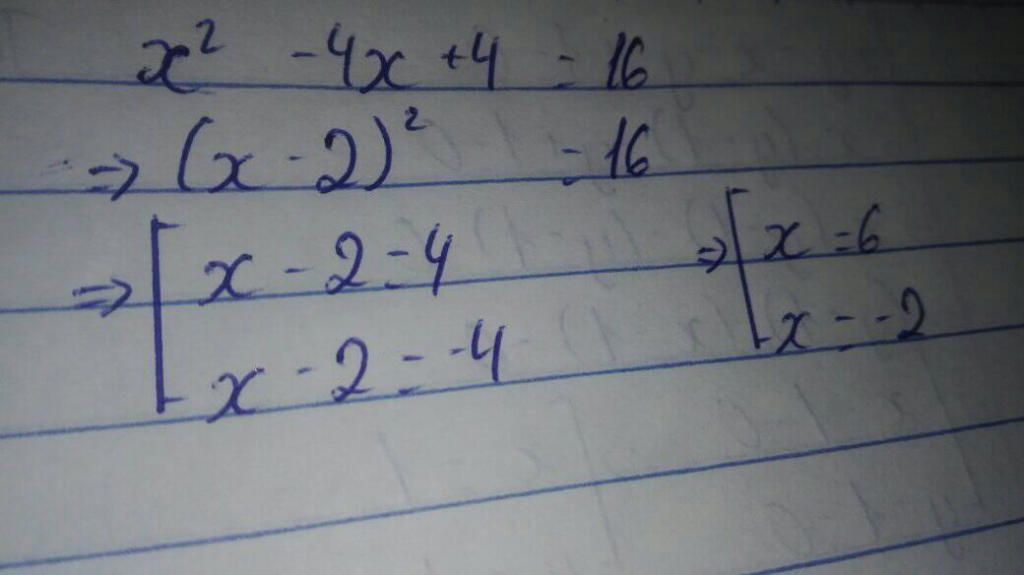 x² - 4x + 4 = 16
⇒ (x - 2)² = 16
⇒ [ x - 2 = 4 ⇒ [ x = 6
x - 2 = -4 x = -2